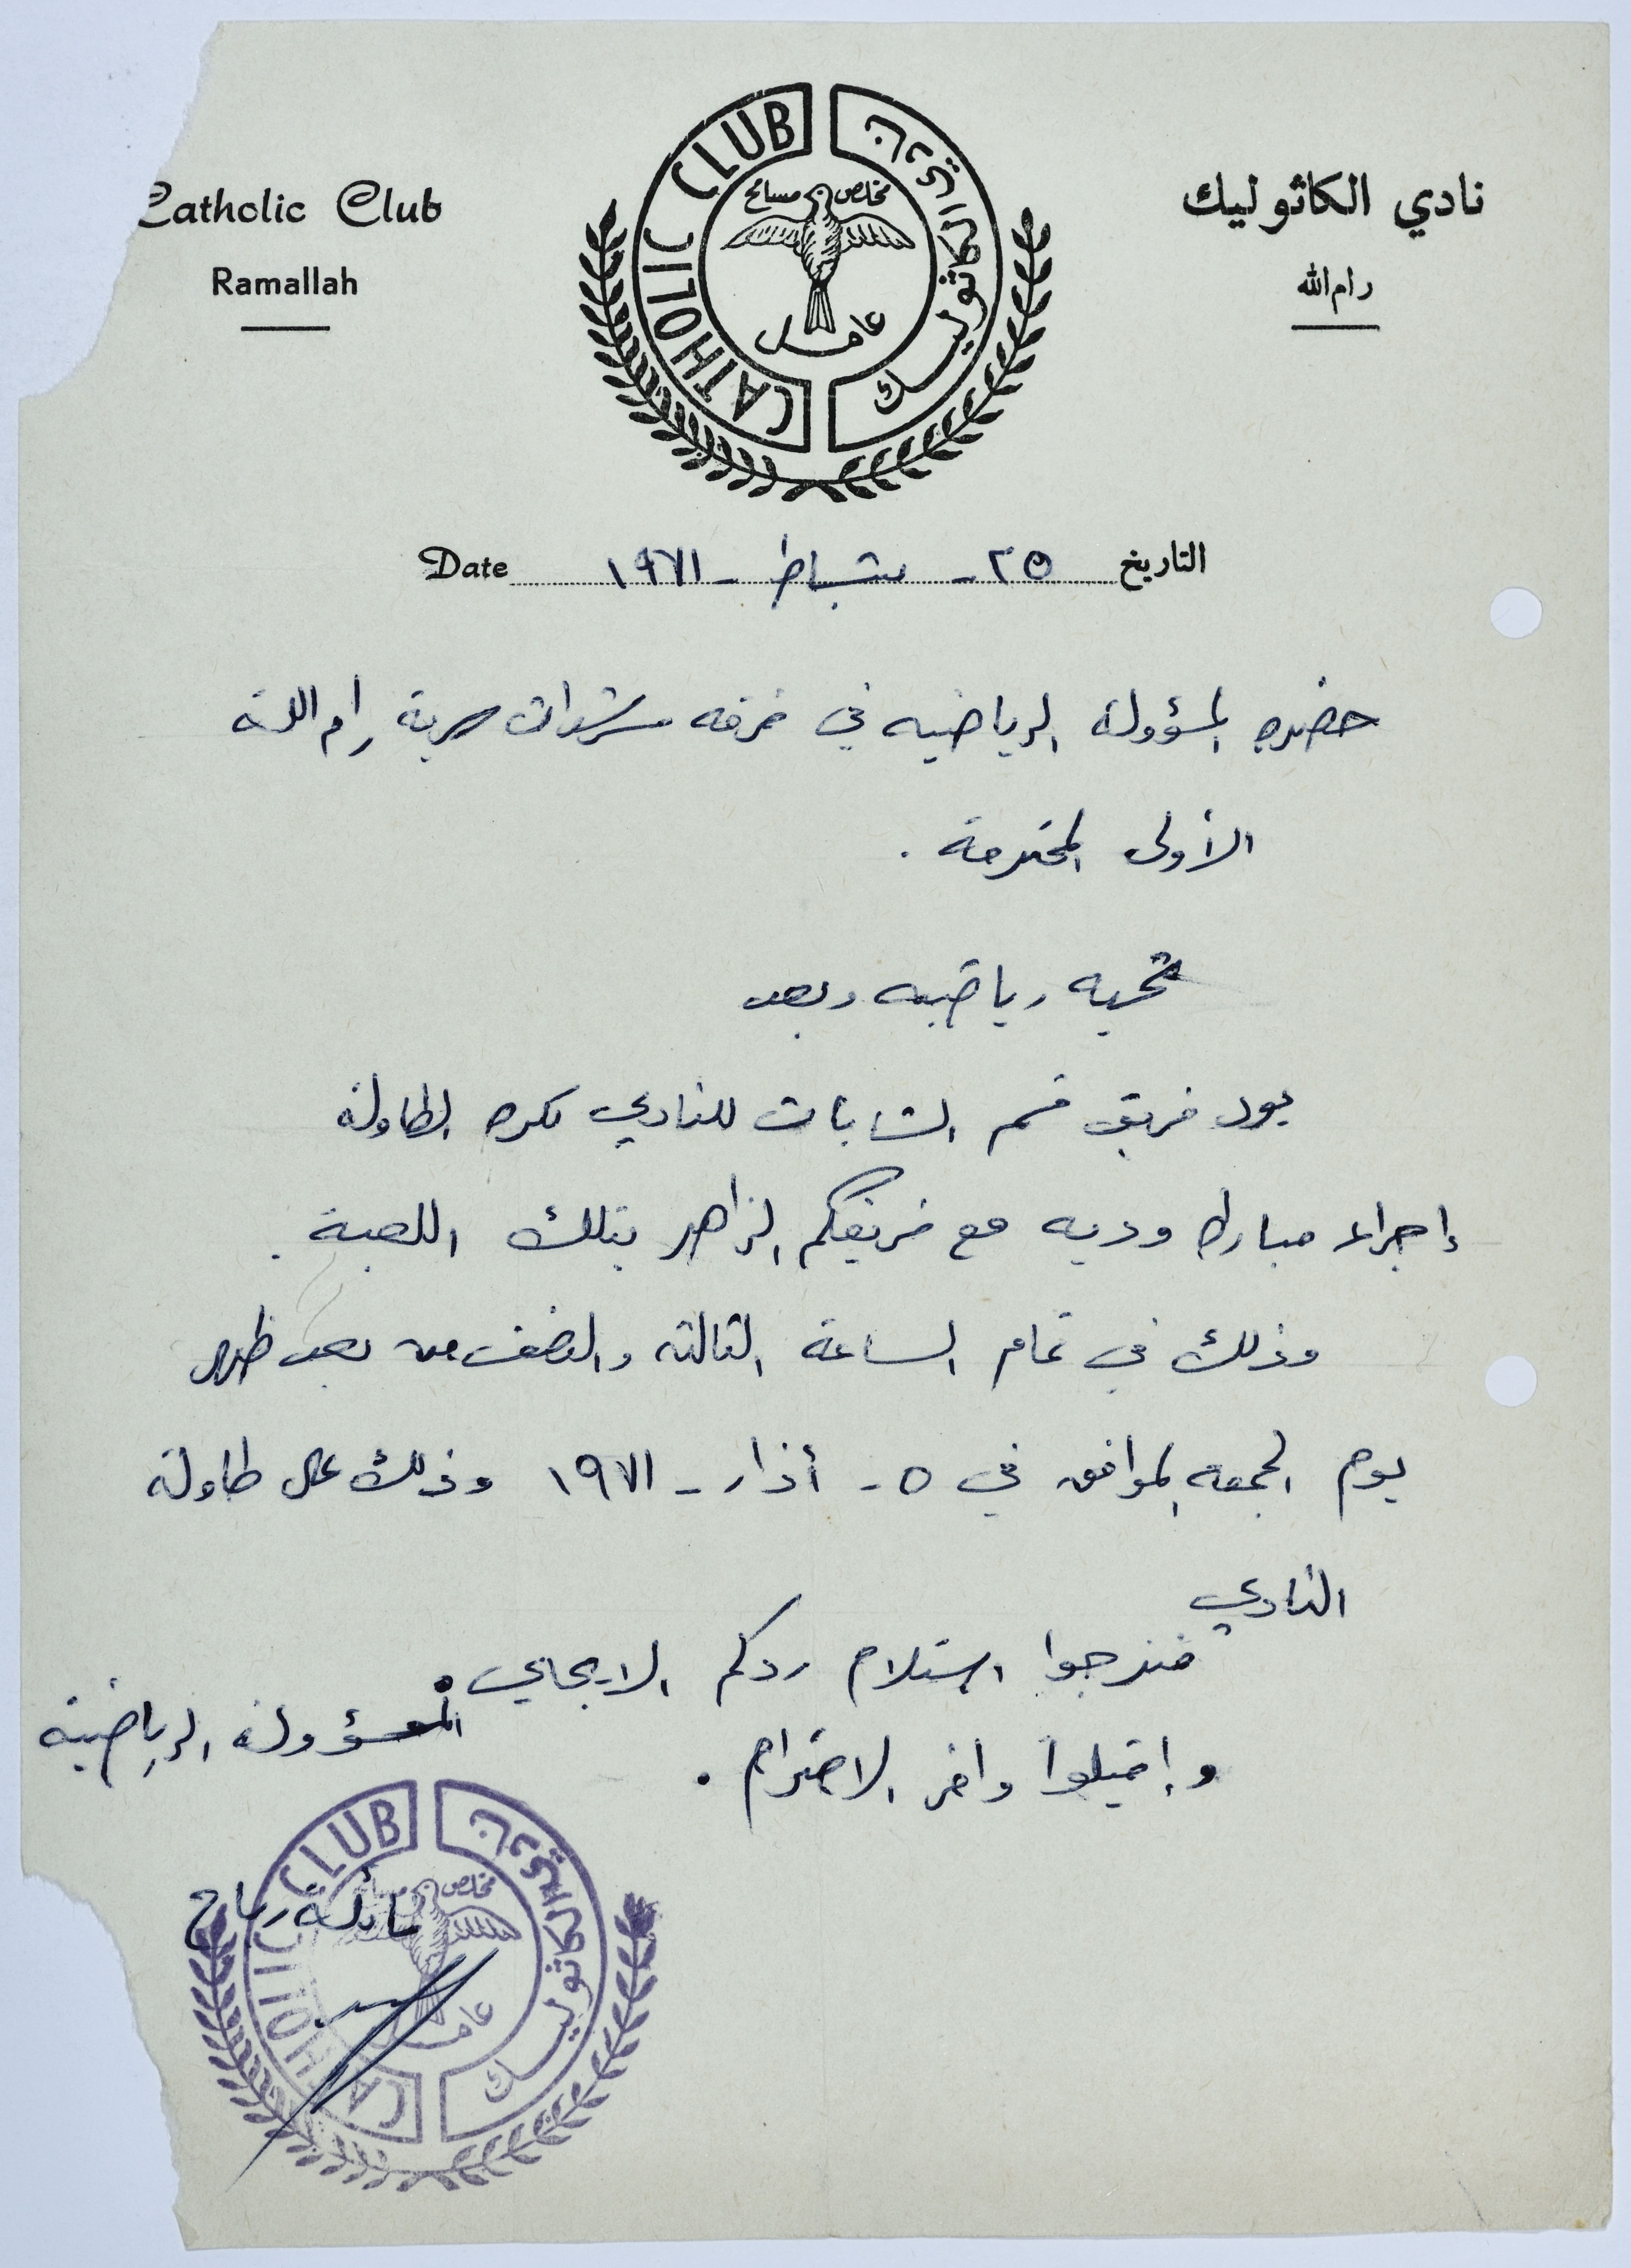 Catholic Club
Ramallah
CATHOLIC CLUB
نادي الكاثوليك
مخلص مسامح
عامل
نادي الكاثوليك
رام الله
التاريخ ٢٥ - شباط - ١٩٧١ Date
حضره المسؤولة الرياضيه في فرقه مرشدات سرية رام الله
الأولى المحترمة .
تحيه رياضيه وبعد
يود فريق قسم الشابات للنادي لكره الطاولة
إجراء مباراه وديه مع فريقكم الزاهر بتلك اللعبة .
وذلك في تمام الساعة الثالثة والنصف من بعد ظهر
يوم الجمعه الموافق في ٥ - أذار - ١٩٧١ وذلك على طاولة
النادي
فنرجوا استلام ردكم الايجابي .
وإقبلوا وافر الاحترام .
المسؤولة الرياضية
رباح
CATHOLIC CLUB
الكاثوليك
مخلص
عامل